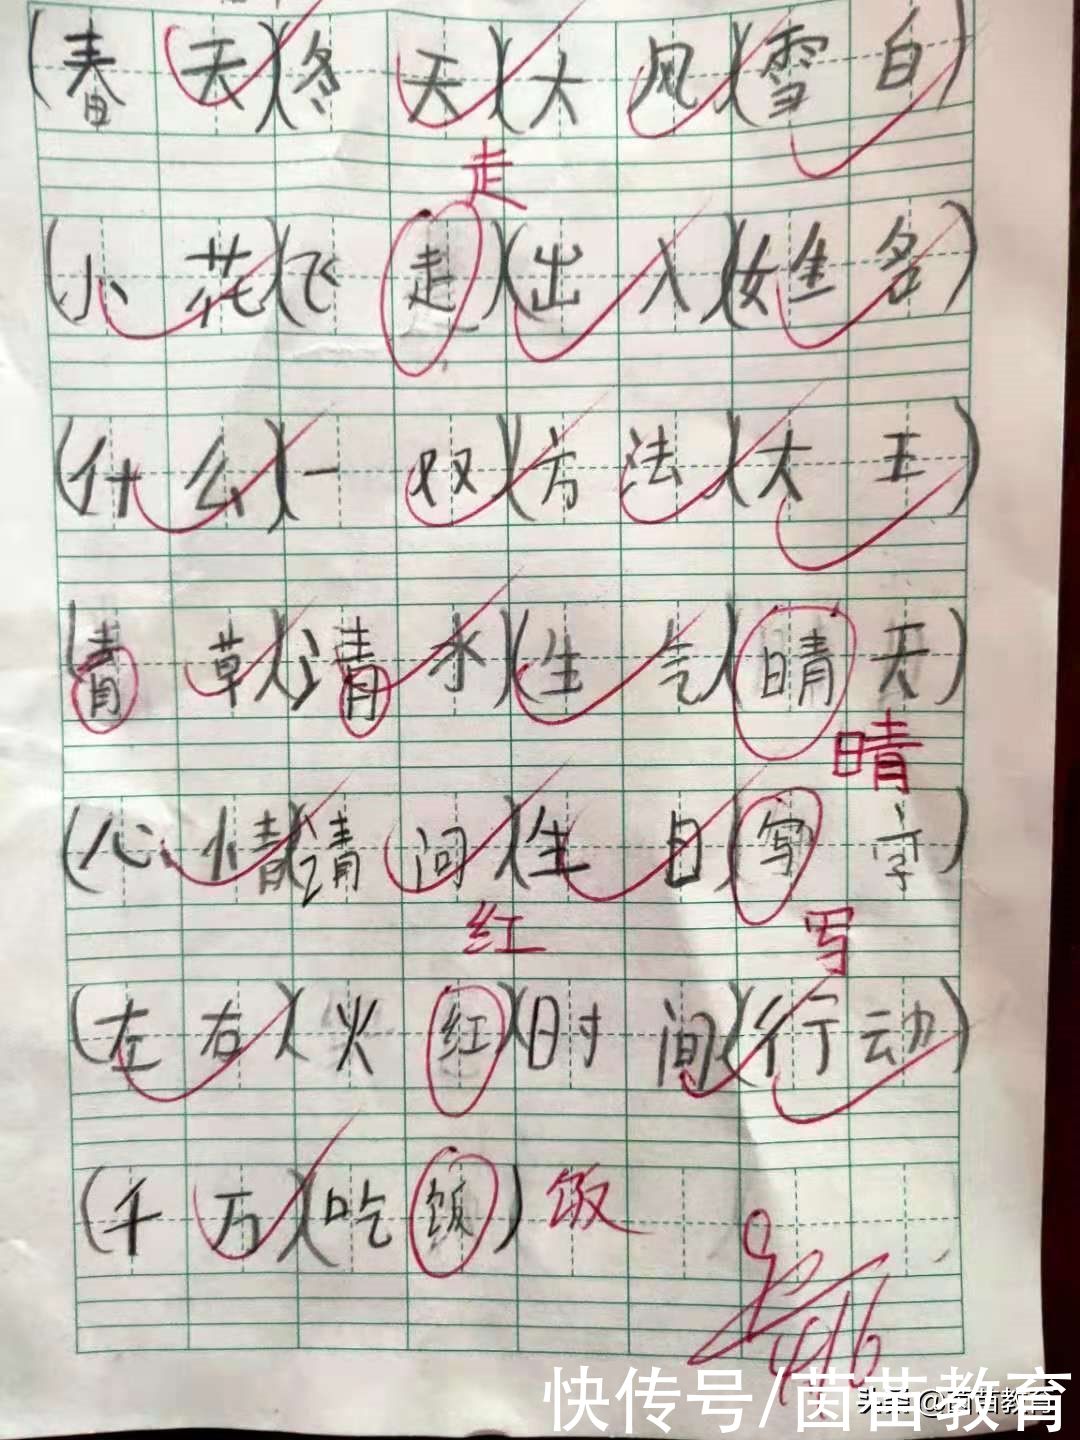 (春天)(冬天)(大风)(雪白)
走
(小花)(飞走)(出入)(姓名)
(什么)(一双)(方法)(大王)
(青草)(清水)(生气)(晴天)
晴
(心情)(请问)(生日)(写字)
红 写
(左右)(火红)(时间)(行动)
(千万)(吃饭) 饭
4.16
快传号/茵苗教育
头条 @茵苗教育